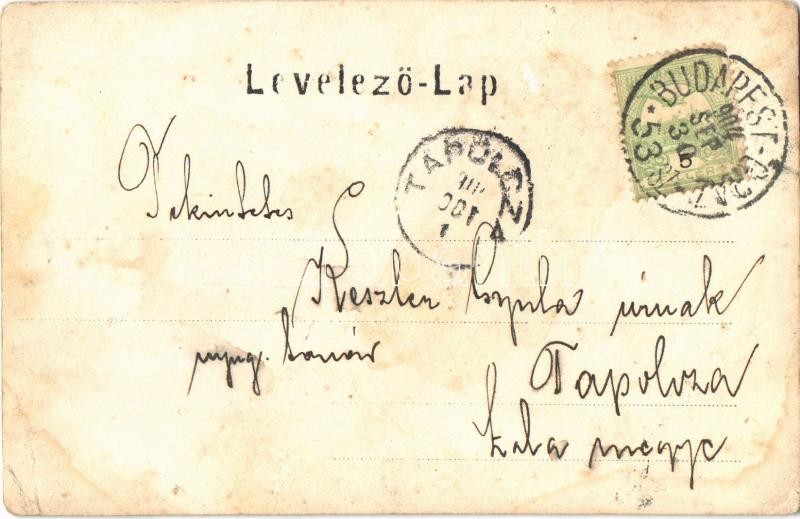 Levelező-Lap
BUDAPEST-GRAZ
SEP
30
* 53
TAPOLCZA
Tekintetes
Keszler Gyula úrnak
nyug. tanár
Tapolcza
Zala megye